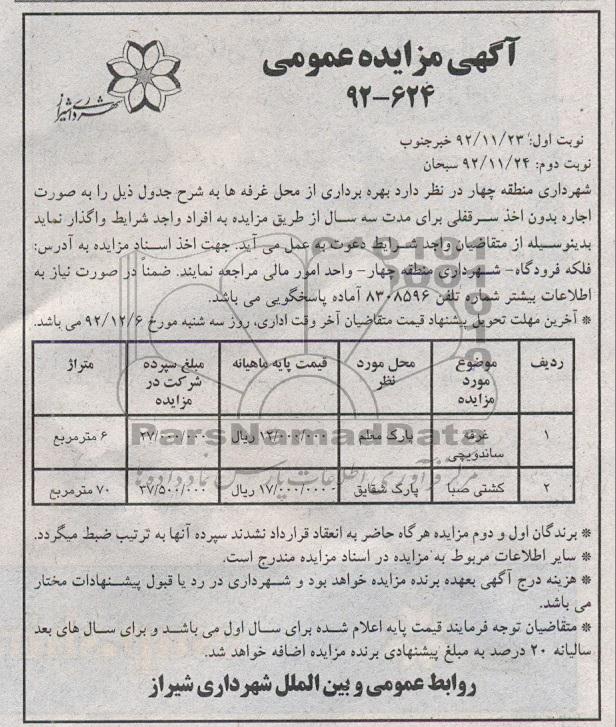 آگهی مزایده عمومی
۹۲-۶۲۴
شهرداری شیراز
نوبت اول: ۹۲/۱۱/۲۳ خبرجنوب
نوبت دوم: ۹۲/۱۱/۲۴ سبحان
شهرداری منطقه چهار در نظر دارد بهره برداری از محل غرفه ها به شرح جدول ذیل را به صورت
اجاره بدون اخذ سرقفلی برای مدت سه سال از طریق مزایده به افراد واجد شرایط واگذار نماید
بدینوسیله از متقاضیان واجد شرایط دعوت به عمل می آید. جهت اخذ اسناد مزایده به آدرس:
فلکه فرودگاه- شهرداری منطقه چهار- واحد امور مالی مراجعه نمایند. ضمناً در صورت نیاز به
اطلاعات بیشتر شماره تلفن ۸۳۰۸۵۹۶ آماده پاسخگویی می باشد.
* آخرین مهلت تحویل پیشنهاد قیمت متقاضیان آخر وقت اداری، روز سه شنبه مورخ ۹۲/۱۲/۶ می باشد.
ردیف موضوع مورد مزایده محل مورد نظر قیمت پایه ماهیانه مبلغ سپرده شرکت در مزایده متراژ
۱ غرفه ساندویچی پارک معلم ۱۲/۰۰۰/۰۰۰ ریال ۲۷/۰۰۰/۰۰۰ ۶ مترمربع
۲ کشتی صبا پارک شقایق ۱۷/۰۰۰/۰۰۰ ریال ۳۷/۵۰۰/۰۰۰ ۷۰ مترمربع
ParsNamadData
مرکز فرآوری اطلاعات پارس نماد داده ها
* برندگان اول و دوم مزایده هرگاه حاضر به انعقاد قرارداد نشدند سپرده آنها به ترتیب ضبط میگردد.
* سایر اطلاعات مربوط به مزایده در اسناد مزایده مندرج است.
* هزینه درج آگهی بعهده برنده مزایده خواهد بود و شهرداری در رد یا قبول پیشنهادات مختار
می باشد.
* متقاضیان توجه فرمایند قیمت پایه اعلام شده برای سال اول می باشد و برای سال های بعد
سالیانه ۲۰ درصد به مبلغ پیشنهادی برنده مزایده اضافه خواهد شد.
روابط عمومی و بین الملل شهرداری شیراز